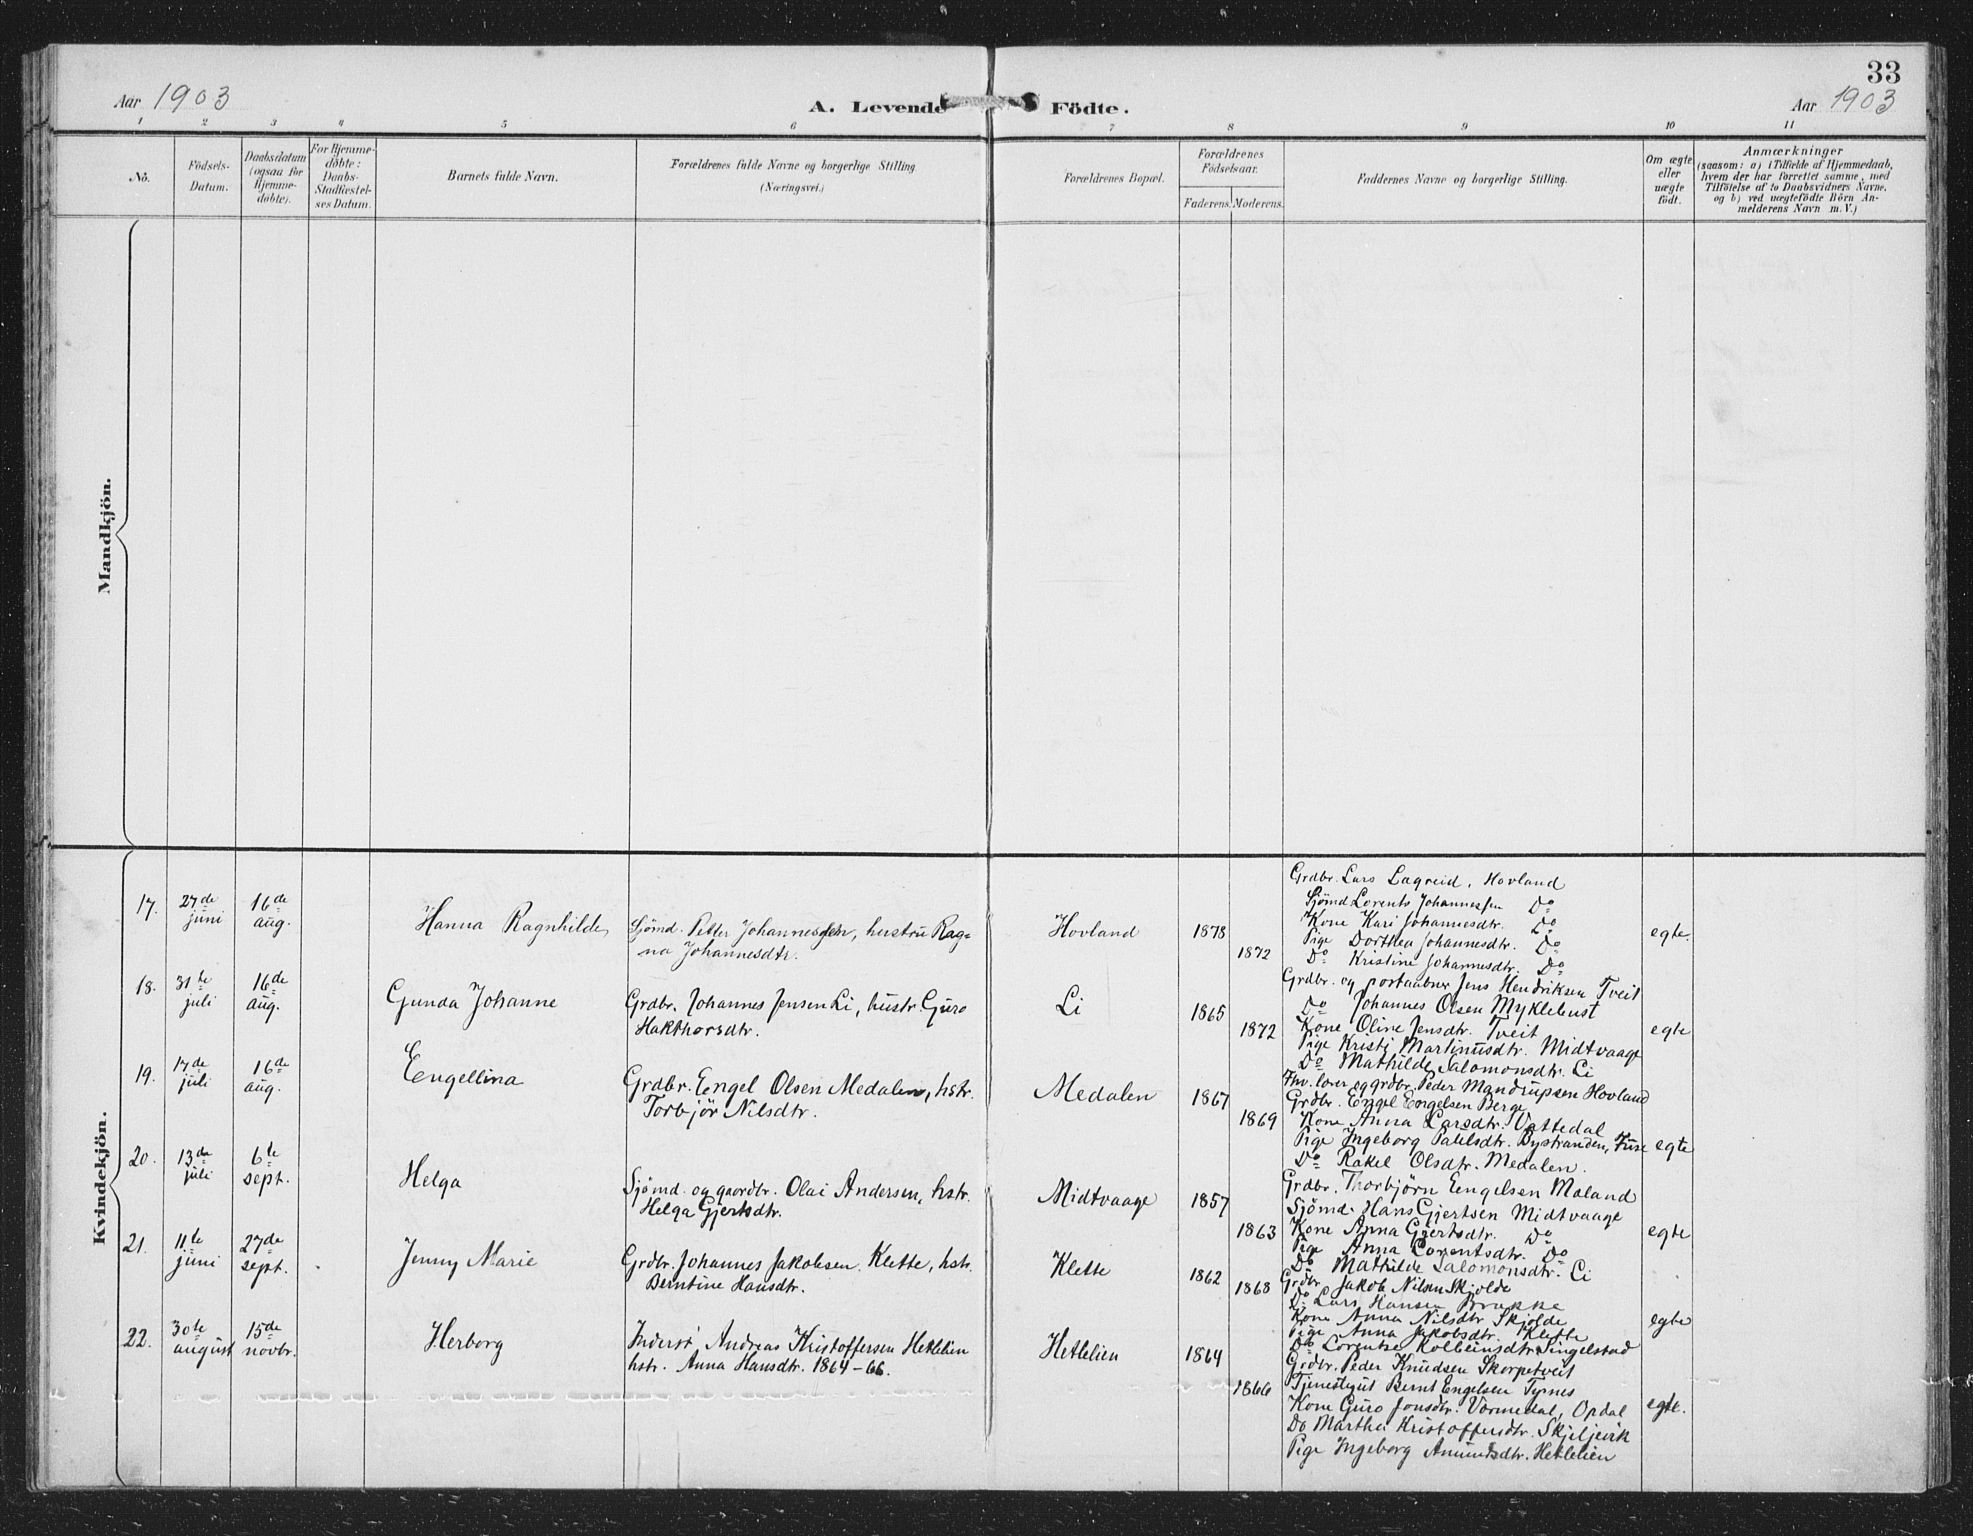 33
Aar 1903
A. Levende Födte.
Aar 1903
1 2 3 4 5 6 7 8 9 10 11
No.
Födsels-
Datum.
Daabsdatum
(ogsaa for
Hjemme-
døbte).
For Hjemme-
döbte:
Daabs-
Stadfæstel-
ses Datum.
Barnets fulde Navn.
Forældrenes fulde Navne og borgerlige Stilling
(Næringsvei.)
Forældrenes Bopæl.
Forældrenes
Födselsaar.
Faderens. Moderens.
Faddernes Navne og borgerlige Stilling.
Om ægte
eller
uægte
födt.
Anmærkninger
(saasom: a) i Tilfælde af Hjemmedaab,
hvem der har forrettet samme, med
Tilföielse af to Daabsvidners Navne,
og b) ved uægtefödte Börn An-
melderens Navn m. V.)
Mandkjön.
Kvindekjön.
17. 27de juni
16de aug.
Hanna Ragnhilde
Sjömd. Petter Johannessen, hustru Rag=
na Johannesdtr.
Hovland
1878
1872
Grdbr. Lars Lagreid, Hovland
Sjömd Lorents Johannessen Do
Kone Kari Johannesdtr. Do
Pige Dorthea Johannesdtr. Do
Do Kristine Johannesdtr. Do
egte.
18. 31te juli
16de aug.
Gunda Johanne
Grdbr. Johannes Jensen Li, hustr. Guro
Hakthorsdtr.
Li
1865
1872
Grdbr. og postaabner Jens Hendriksen Tveit
Do Johannes Olsen Myklebust
Kone Oline Jensdtr. Tveit
Pige Kristi Martinusdtr. Midtvaage
Do Mathilde Salomonsdtr. Li
egte
19. 17de juli
16de aug.
Eengellina
Grdbr. Eengel Olsen Medalen, hstr.
Torbjör Nilsdtr.
Medalen
1867
1869
og grdbr. Peder Mandrupsen Hovland
Grdbr. Engel Engelsen Berge
Kone Anna Larsdtr. Vattedal
Pige Ingeborg Paulsdtr. Bystranden, Fuse
Do Rakel Olsdtr. Medalen.
egte
20. 13de juli
6te sept.
Helga
Sjömd. og gaardbr. Olai Andersen, hstr.
Helga Gjertsdtr.
Midtvaage
1857
1863
Grdbr. Thorbjörn Eengelsen Maland
Sjömd. Hans Gjertsen Midtvaage
Kone Anna Gjertsdtr. Do
Pige Anna Lorentsdtr. Do
Do Mathilde Salomonsdtr. Li
egte
21. 11te juni
27de sept.
Jenny Marie
Grdbr. Johannes Jakobsen Klette, hstr.
Berntine Hansdtr.
Klette
1862
1868
Grdbr. Jakob Nilsen Skjolde
Do Lars Hansen Brakke
Kone Anna Nilsdtr Skjolde
Pige Anna Jakobsdtr. Klette
Do Lorentse Kolbeinsdtr. Singelstad
egte
22. 30te august
15de novbr.
Herborg
Inderst Andreas Kristoffersen Hetlelien
hstr. Anna Hansdtr. 1864-66.
Hetlelien
1864
1866
Grdbr. Peder Knudsen Skorpetveit
Tjenestgut Bernt Engelsen Tynes
Kone Guro Jonsdtr. Varmedal, Opdal
Do Martha Kristoffersdtr. Skjeljevik
Pige Ingeborg Amundsdtr. Hetlelien
egte.